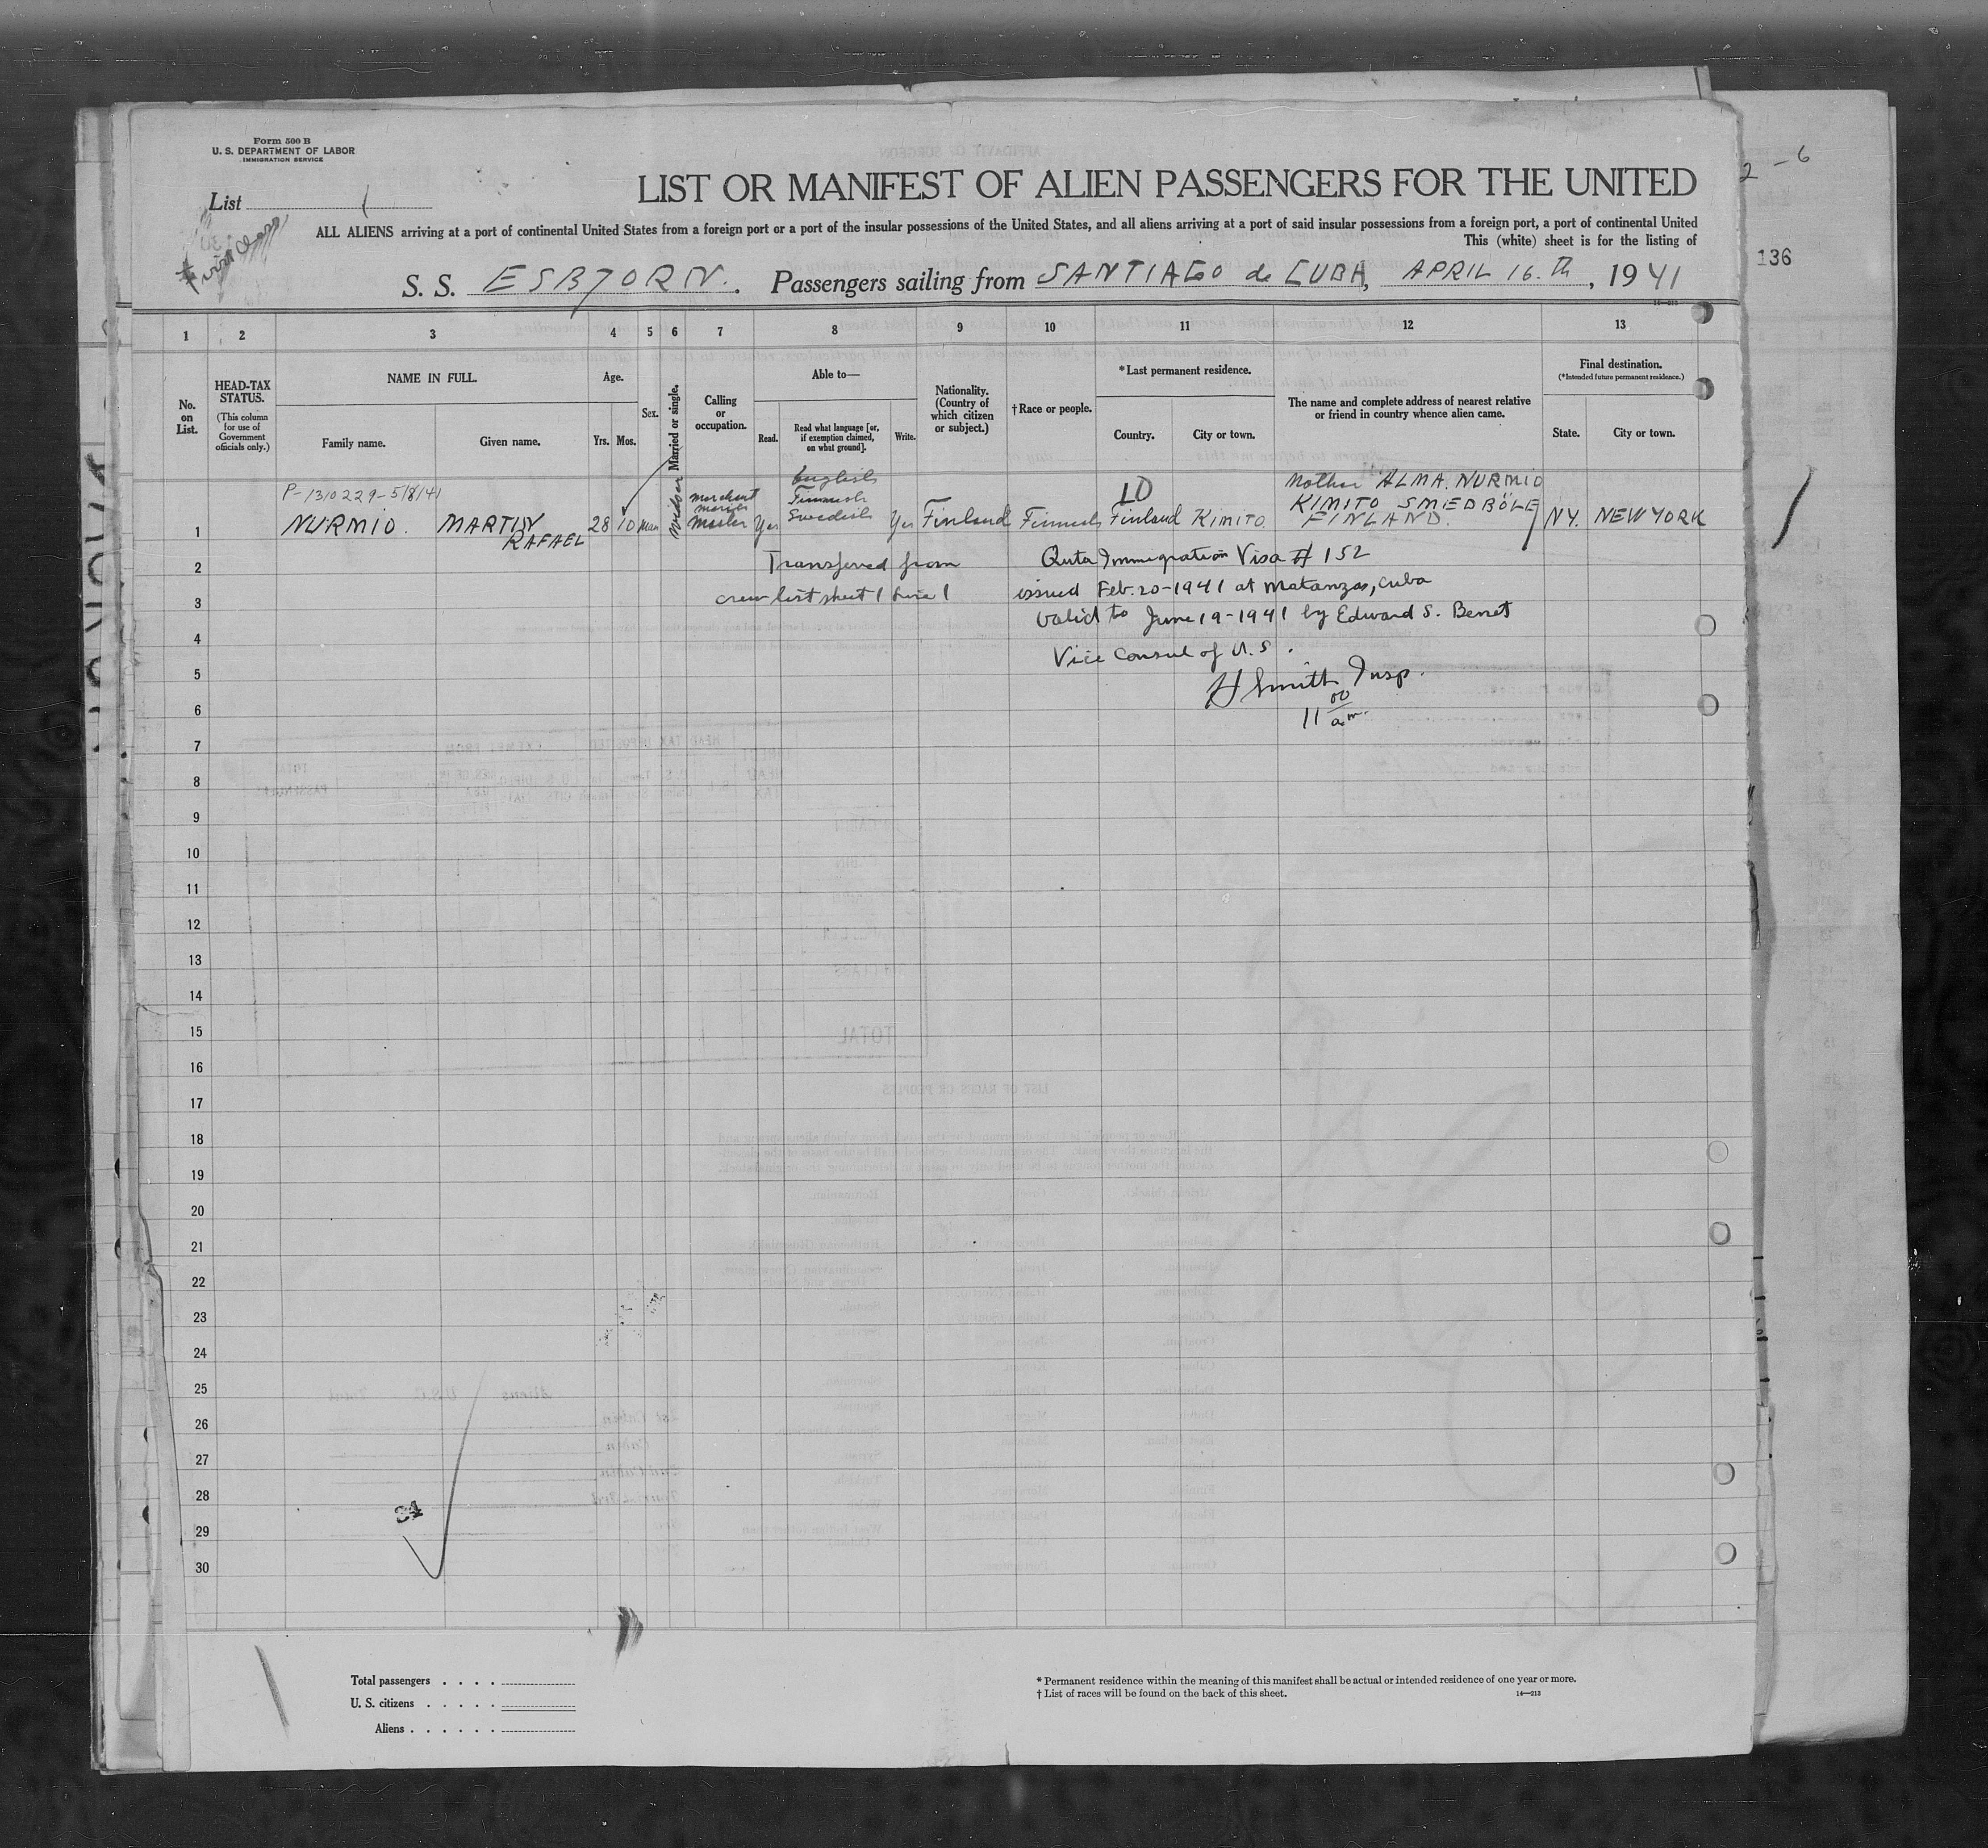 Form 500 B
U. S. DEPARTMENT OF LABOR
IMMIGRATION SERVICE
List 1
LIST OR MANIFEST OF ALIEN PASSENGERS FOR THE UNITED
2 - 6
ALL ALIENS arriving at a port of continental United States from a foreign port or a port of the insular possessions of the United States, and all aliens arriving at a port of said insular possessions from a foreign port, a port of continental United
This (white) sheet is for the listing of
136
S. S. ESBJORN. Passengers sailing from SANTIAGO de CUBA, APRIL 16.th, 1941
14—213
1 2 3 4 5 6 7 8 9 10 11 12 13
No. on List.
HEAD-TAX STATUS.
(This column for use of Government officials only.)
NAME IN FULL.
Family name.
Given name.
Age.
Yrs. Mos.
Sex.
Married or single.
Calling or occupation.
Able to—
Read.
Read what language [or, if exemption claimed, on what ground].
Write.
Nationality. (Country of which citizen or subject.)
† Race or people.
* Last permanent residence.
Country.
City or town.
The name and complete address of nearest relative or friend in country whence alien came.
Final destination.
(* Intended future permanent residence.)
State.
City or town.
P-1310229-5/8/41
1 NURMIO. MARTIN RAFAEL 28 10 Man Widower merchant marine Master Yes English Finnish Swedish Yes Finland Finnish LD Finland KIMITO. Mother ALMA. NURMIO KIMITO SMEDBÖLE FINLAND. NY. NEW YORK
2 Transferred from Quta Immigration Visa # 152
3 crew list sheet 1 Line 1 issued Feb. 20-1941 at Matanzas, Cuba
4 Valid to June 19-1941 by Edward S. Benet
5 Vice Consul of U.S.
H Smith Insp.
6 11 00 a.m.
7
8
9
10
11
12
13
14
15
16
17
18
19
20
21
22
23
24
25
26
27
28
29
30
34
Total passengers . . . .
U. S. citizens . . . . .
Aliens . . . . . .
* Permanent residence within the meaning of this manifest shall be actual or intended residence of one year or more.
† List of races will be found on the back of this sheet.
14—213